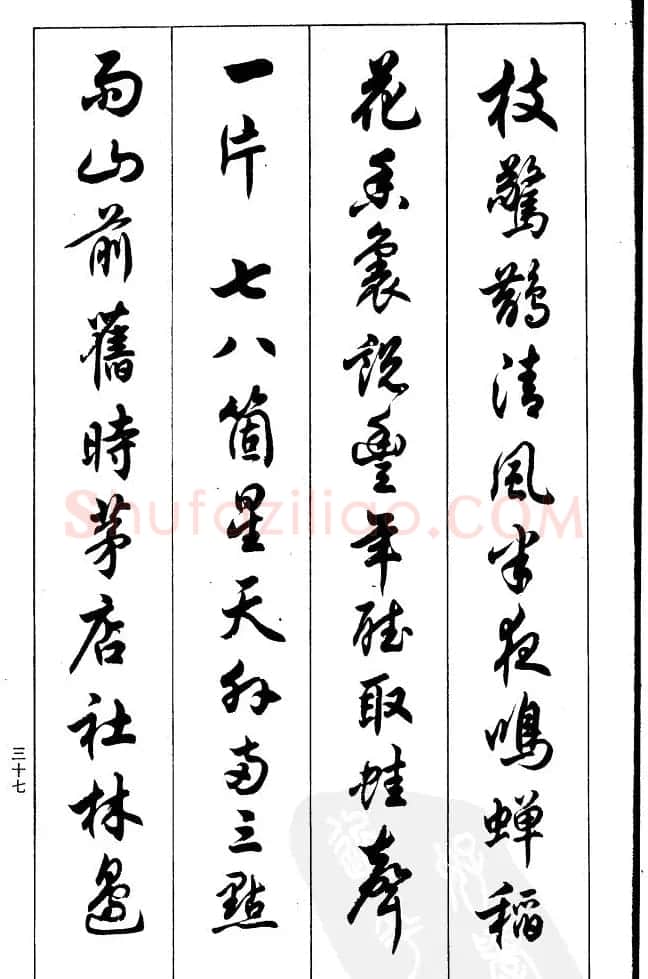 枝驚鵲清風半夜鳴蟬稻
花香裏說豐年聽取蛙聲
一片 七八箇星天外兩三點
雨山前舊時茅店社林邊
三十七
Shufaziliao.COM